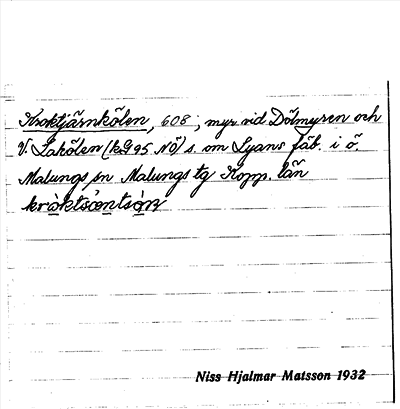 Kroktjärnkölen, 608, myr vid Dölmyren och
V. Lakölen (kG 95 NÖ) s. om Lyans fäb. i ö.
Malungs sn Malungs tg Kopp. län
Niss Hjalmar Matsson 1932